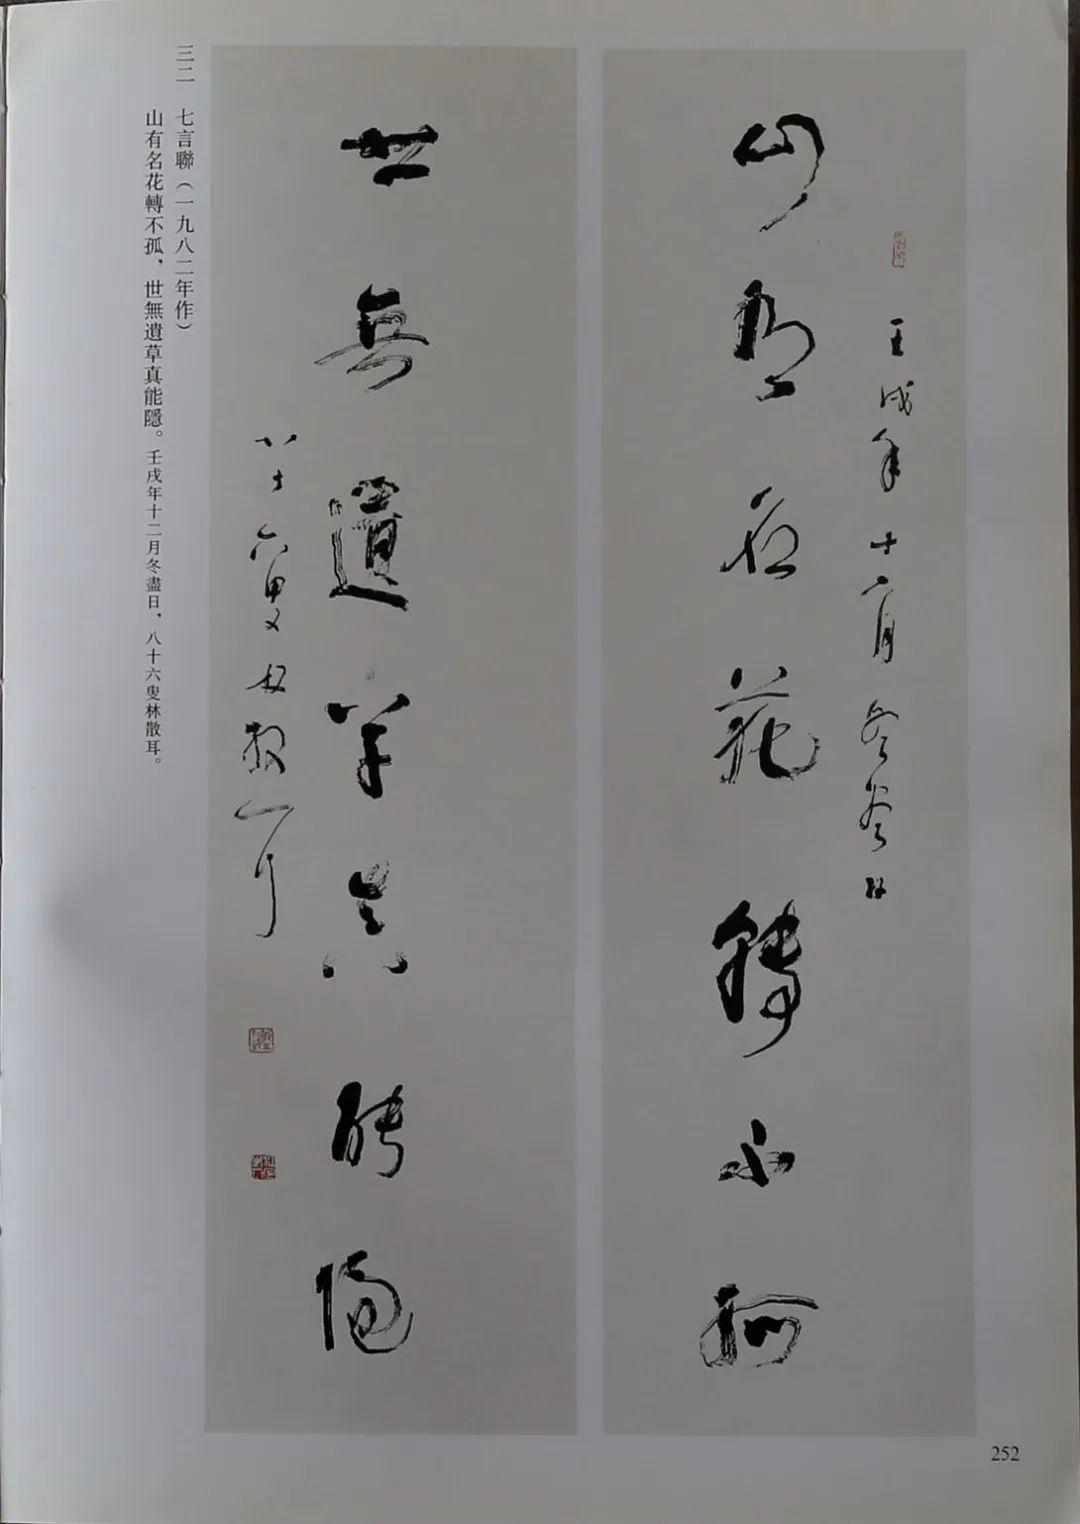 山有名花轉不孤
壬戌年十二月冬盡日
世無遺草真能隱
八十六叟林散耳
三二 七言聯（一九八二年作）
山有名花轉不孤，世無遺草真能隱。壬戌年十二月冬盡日，八十六叟林散耳。
252